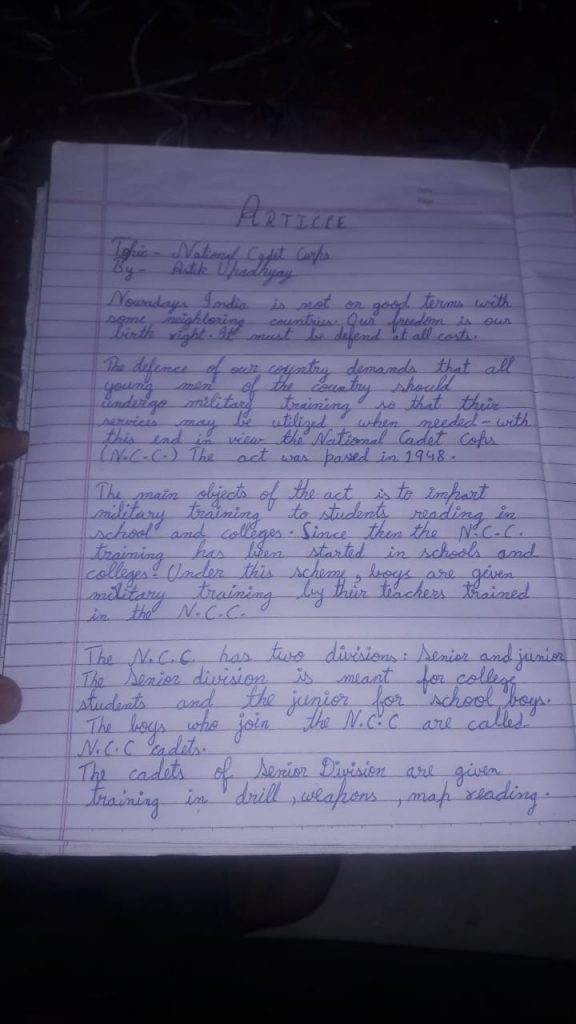 ARTICLE
Topic - National Cadet Corps
By - Artik Upadhyay
Nowadays India is not on good terms with
some neighboring countries. Our freedom is our
birth right. It must be defend at all costs.
The defence of our country demands that all
young men of the country should
undergo military training so that their
services may be utilized when needed - with
this end in view the National Cadet Cops
(N.C.C.) The act was passed in 1948.
The main objects of the act is to impart
military training to students reading in
school and colleges. Since then the N.C.C.
training has been started in schools and
colleges. Under this scheme, boys are given
military training by their teachers trained
in the N.C.C.
The N.C.C. has two divisions: Senior and junior
The Senior division is meant for college
students and the junior for school boys.
The boys who join the N.C.C are called
N.C.C cadets.
The cadets of Senior Division are given
training in drill, weapons, map reading.